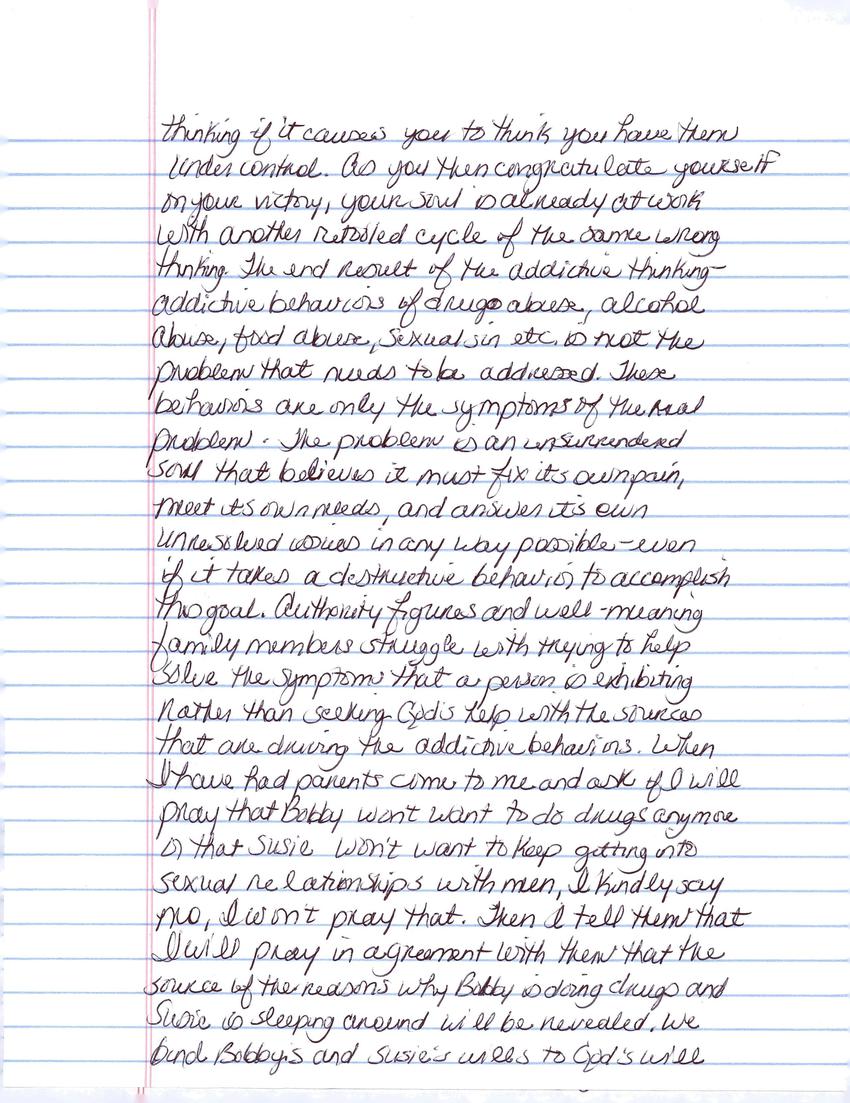 thinking if it causes you to think you have them
under control. As you then congratulate yourself
on your victory, your soul is already at work
with another retooled cycle of the same wrong
thinking. The end result of the addictive thinking-
addictive behaviors of drugs abuse, alcohol
abuse, food abuse, sexual sin etc. is not the
problem that needs to be addressed. These
behaviors are only the symptoms of the real
problem. The problem is an unsurrendered
soul that believes it must fix its own pain,
meet its own needs, and answer its own
unresolved issues in any way possible-even
if it takes a destructive behavior to accomplish
this goal. Authority figures and well-meaning
family members struggle with trying to help
solve the symptoms that a person is exhibiting
rather than seeking God's help with the sources
that are driving the addictive behaviors. When
I have had parents come to me and ask if I will
pray that Bobby won't want to do drugs anymore
or that Susie won't want to keep getting into
sexual relationships with men, I kindly say
no, I won't pray that. Then I tell them that
I will pray in agreement with them that the
source of the reasons why Bobby is doing drugs and
Susie is sleeping around will be revealed. We
bind Bobby's and Susie's wills to God's will